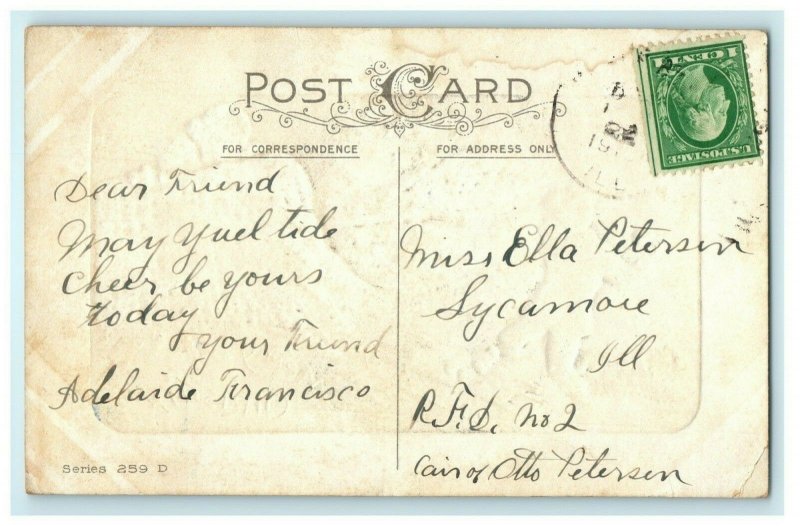 POST CARD
FOR CORRESPONDENCE
FOR ADDRESS ONLY
Dear Friend
May Yuel tide
Cheer be yours
today
your Friend
Adelaide Francisco
Series 259 D
Miss Ella Petersen
Sycamore
Ill
R.F.D. no 2
Cair of Otto Petersen
U.S. POSTAGE
1 CENT 1
ILL